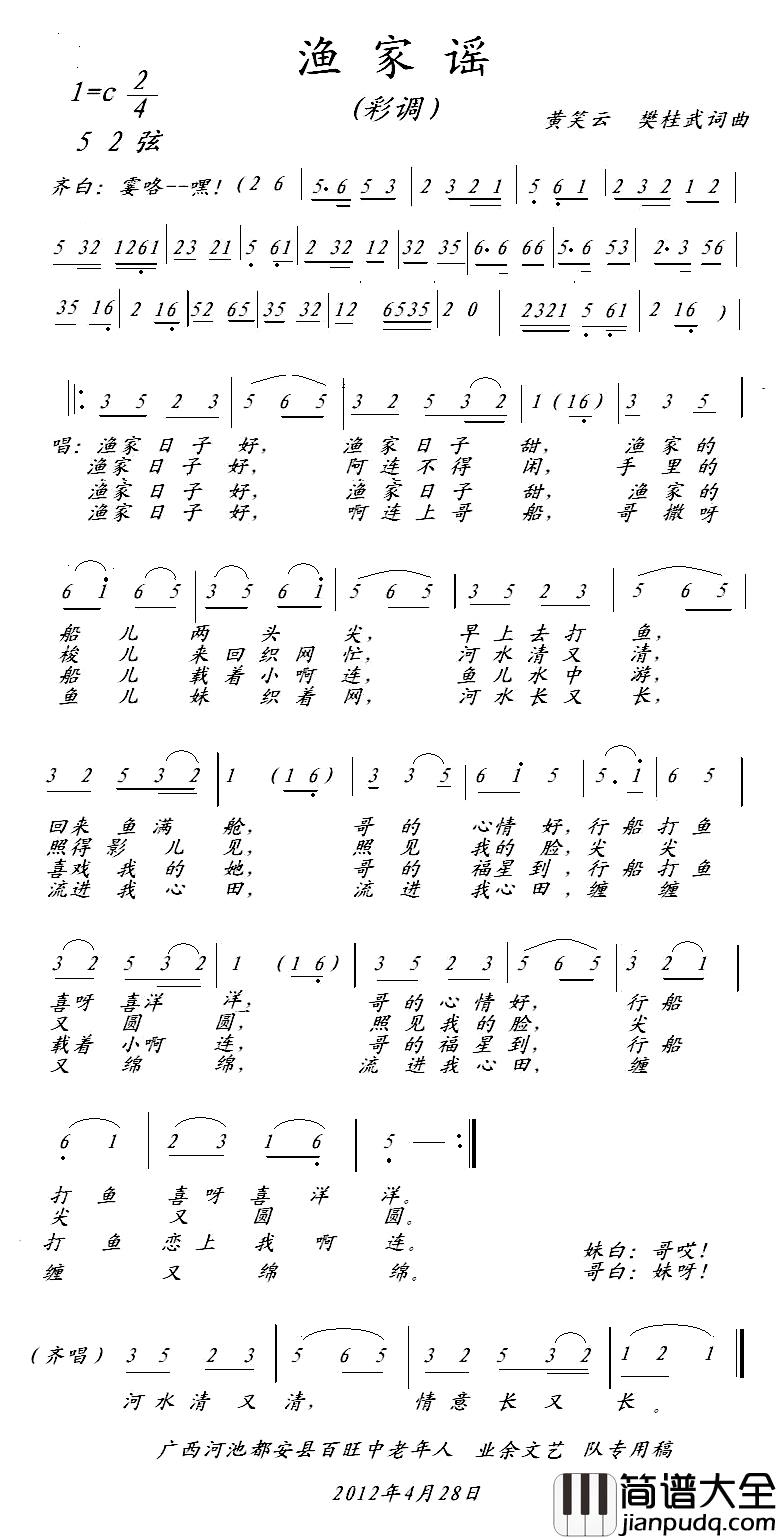 渔家谣
(彩调)
1=c 2/4
5 2弦
黄笑云 樊桂武词曲
齐白：霎咯--嘿！(2 6 | 5·6 5 3 | 2 3 2 1 | 5 6 1 | 2 3 2 1 2 |
5 32 1261 | 23 21 | 5 61 | 2 32 12 | 32 35 | 6·6 66 | 5·6 53 | 2·3 56 |
35 16 | 2 16 | 52 65 | 35 32 | 12 6535 | 2 0 | 2321 5 61 | 2 16 ) |
‖: 3 5 2 3 | 5 6 5 | 3 2 5 3 2 | 1 (16) | 3 3 5 |
唱：渔家日子好， 渔家日子 甜， 渔家的
渔家日子好， 阿连不得 闲， 手里的
渔家日子好， 渔家日子 甜， 渔家的
渔家日子好， 啊连上哥 船， 哥撒呀
6 i 6 5 | 3 5 6 i | 5 6 5 | 3 5 2 3 | 5 6 5 |
船儿两头尖， 早上去打鱼，
梭儿来回织网忙， 河水清又清，
船儿载着小啊连， 鱼儿水中游，
鱼儿妹织着网， 河水长又长，
3 2 5 3 2 | 1 (1 6) | 3 3 5 | 6 i 5 | 5· i | 6 5 |
回来鱼满舱， 哥的心情好，行船打鱼
照得影儿见， 照见我的脸，尖尖
喜戏我的她， 哥的福星到，行船打鱼
流进我心田， 流进我心田，缠缠
3 2 5 3 2 | 1 (1 6) | 3 5 2 3 | 5 6 5 | 3 2 1 |
喜呀喜洋洋； 哥的心情好， 行船
又圆圆， 照见我的脸， 尖
载着小啊连， 哥的福星到， 行船
又绵绵， 流进我心田， 缠
6 1 | 2 3 1 6 | 5 — :‖
打鱼喜呀喜洋洋。
尖又圆圆。
打鱼恋上我啊连。
妹白：哥哎！
缠又绵绵。
哥白：妹呀！
(齐唱) 3 5 2 3 | 5 6 5 | 3 2 5 3 2 | 1 2 1 ‖
河水清又清， 情意长又长。
广西河池都安县百旺中老年人 业余文艺 队专用稿
2012年4月28日
简谱大全
jianpudq.com